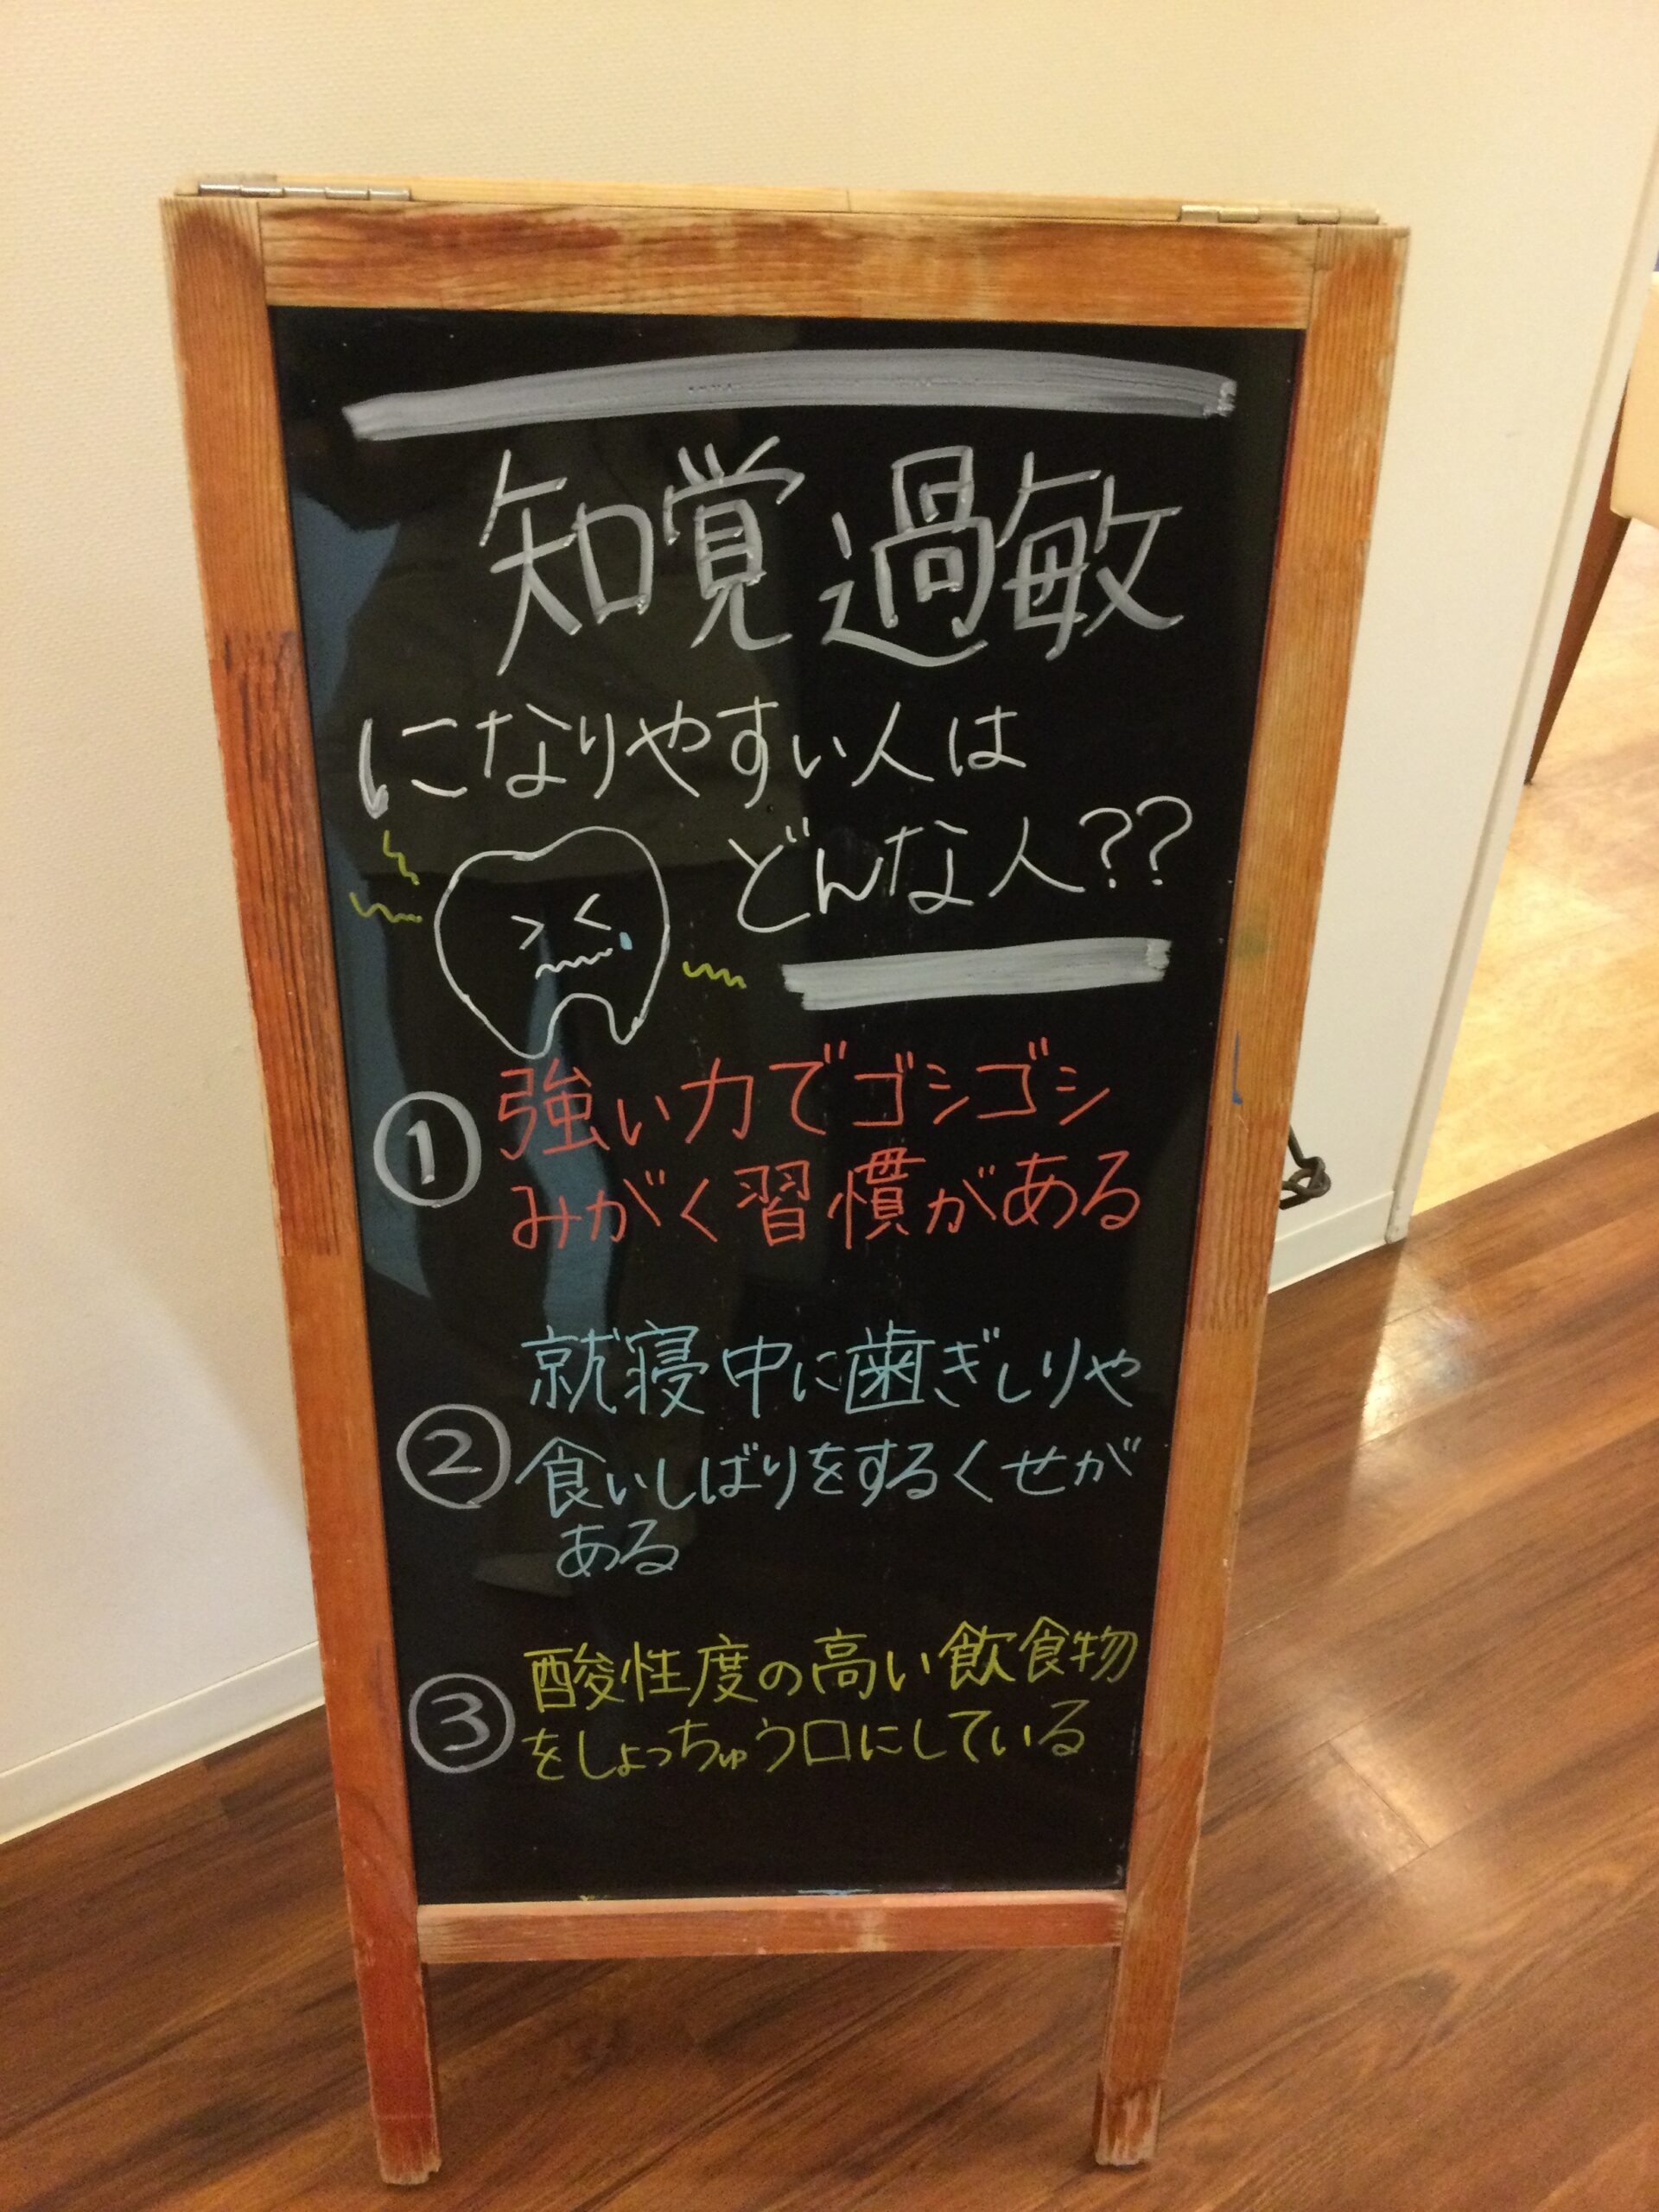 知覚過敏
になりやすい人は
どんな人??
① 強い力でゴシゴシ
みがく習慣がある
② 就寝中に歯ぎしりや
食いしばりをするくせが
ある
③ 酸性度の高い飲食物
をしょっちゅう口にしている